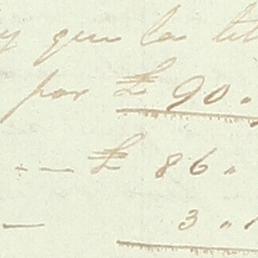 y que la
por £ 90.
-- £ 86.
- 3.